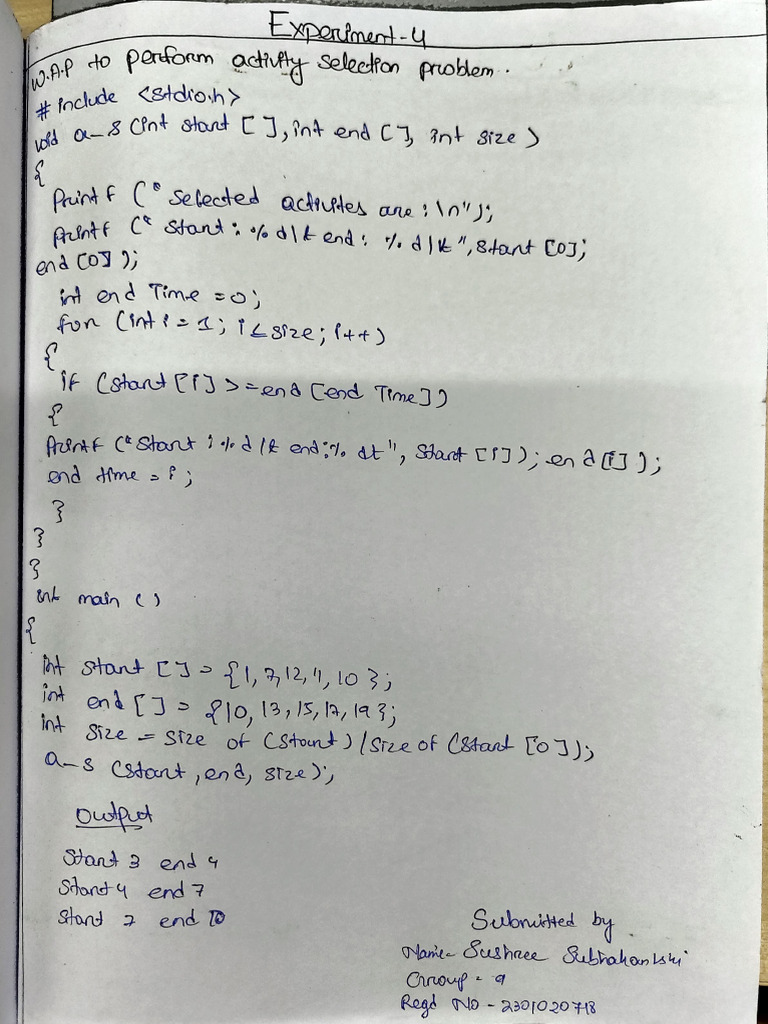 Experiment-4
W.A.P to perform activity selection problem.
# include <stdio.h>
void a-s (int start [ ], int end [ ], int size )
{
Printf (" Selected activites are : \n");
Printf (" Start : % d \t end : % d \t", Start [0];
end [0] );
int end Time = 0;
for (int i = 1; i < size; i++)
{
if (start [i] >= end [end Time])
{
Printf (" Start : % d \t end : % dt", Start [i]); end [i] );
end time = i ;
}
}
}
int main ( )
{
int start [ ] = {1, 7, 12, 4, 10 };
int end [ ] = {10, 13, 15, 17, 19 };
int size = size of (Start) / size of (Start [0]);
a-s (start, end, size);
Output
Start 3 end 4
Start 4 end 7
Start 7 end 10
Submitted by
Name- Sushree
Group - 9
Regd No - 2301020718